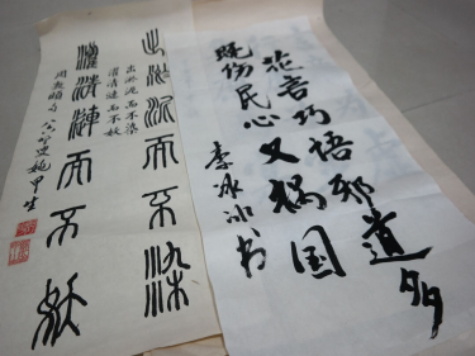 花言巧语邪道多
既伤民心又祸国
李冰冰书
出淤泥而不染
濯清漣而不妖
出淤泥而不染
濯清涟而不妖
周敦颐句 姚甲生